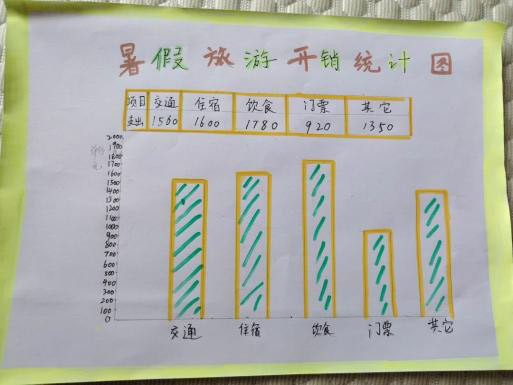 暑假旅游开销统计图
项目 交通 住宿 饮食 门票 其它
支出 1560 1600 1780 920 1350
2000
1900
1800
1700
1600
1500
1400
1300
1200
1100
1000
900
800
700
600
500
400
300
200
100
0
交通 住宿 饮食 门票 其它